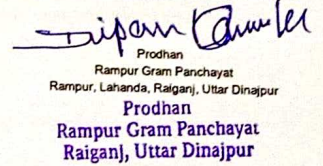 Prodhan
Rampur Gram Panchayat
Rampur, Lahanda, Raiganj, Uttar Dinajpur
Prodhan
Rampur Gram Panchayat
Raiganj, Uttar Dinajpur